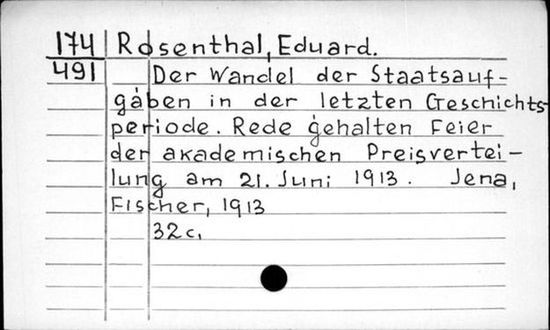 174 Rosenthal, Eduard.
491 Der Wandel der Staatsauf-
gaben in der letzten Geschichts-
periode. Rede gehalten Feier
der akademischen Preisvertei-
lung am 21. Juni 1913. Jena,
Fischer, 1913
32 c.